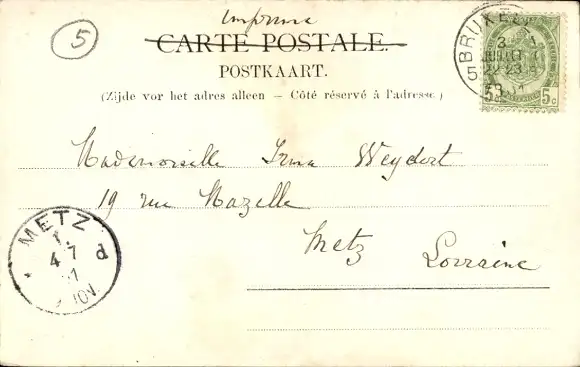 5
imprimé
CARTE POSTALE.
POSTKAART.
(Zijde vor het adres alleen – Côté réservé à l'adresse.)
BRUXEL
5
3
JUILL
5c
Mademoiselle Irma Weydert
19 rue Mazelle
Metz
Lorraine
METZ
1.
4 7
d